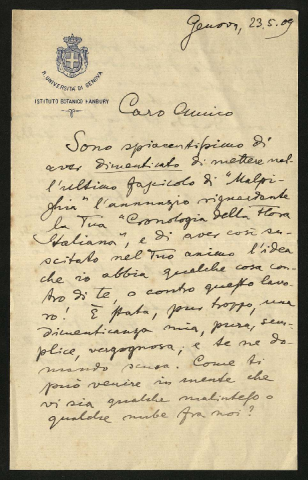 Genova, 23.5.09
R. UNIVERSITÀ DI GENOVA
ISTITUTO BOTANICO HANBURY
Caro Amico
Sono spiacentissimo di
aver dimenticato di mettere nel-
l'ultimo fascicolo di "Malpi-
ghia" l'annunzio riguardante
la Tua "Cronologia della Flora
Italiana", e di aver così su-
scitato nel Tuo animo l'idea
che io abbia qualche cosa con-
tro di te, o contro questo lavo-
ro! È stata, pur troppo, una
dimenticanza mia, pura, sem-
plice, vergognosa; e te ne do-
mando scusa. Come ti
può venire in mente che
vi sia qualche malinteso o
qualche nube fra noi?